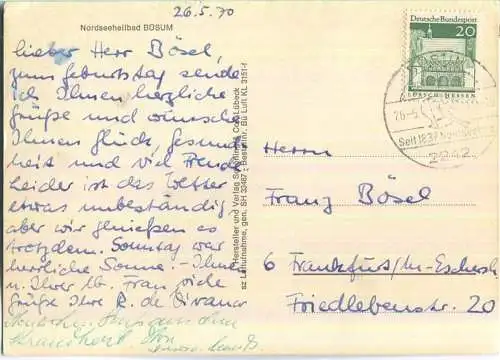 26.5.70
Nordseeheilbad BÜSUM
Lieber Herr Bösel,
zum Geburtstag sende
ich Ihnen herzliche
Grüße und wünsche
Ihnen Glück, Gesund
heit und viel Freude
Leider ist das Wetter
etwas unbeständig
aber wir genießen es
trotzdem. Sonntag war
herrliche Sonne. - Ihnen
u. Ihrer lb. Frau viele
Grüße Ihre R. de
Hersteller und Verlag Schöning & Co., Lübeck
Luftaufnahme, gen. SH 33467 Bestell-Nr. Bü Luft KL 3151
Deutsche Bundespost
20
LORSCH/HESSEN
26.-5
Seit 1837 Nordsee
2242
Herrn
Franz Bösel
6 Frankfurt/M-Eschersh
Friedlebenstr. 20